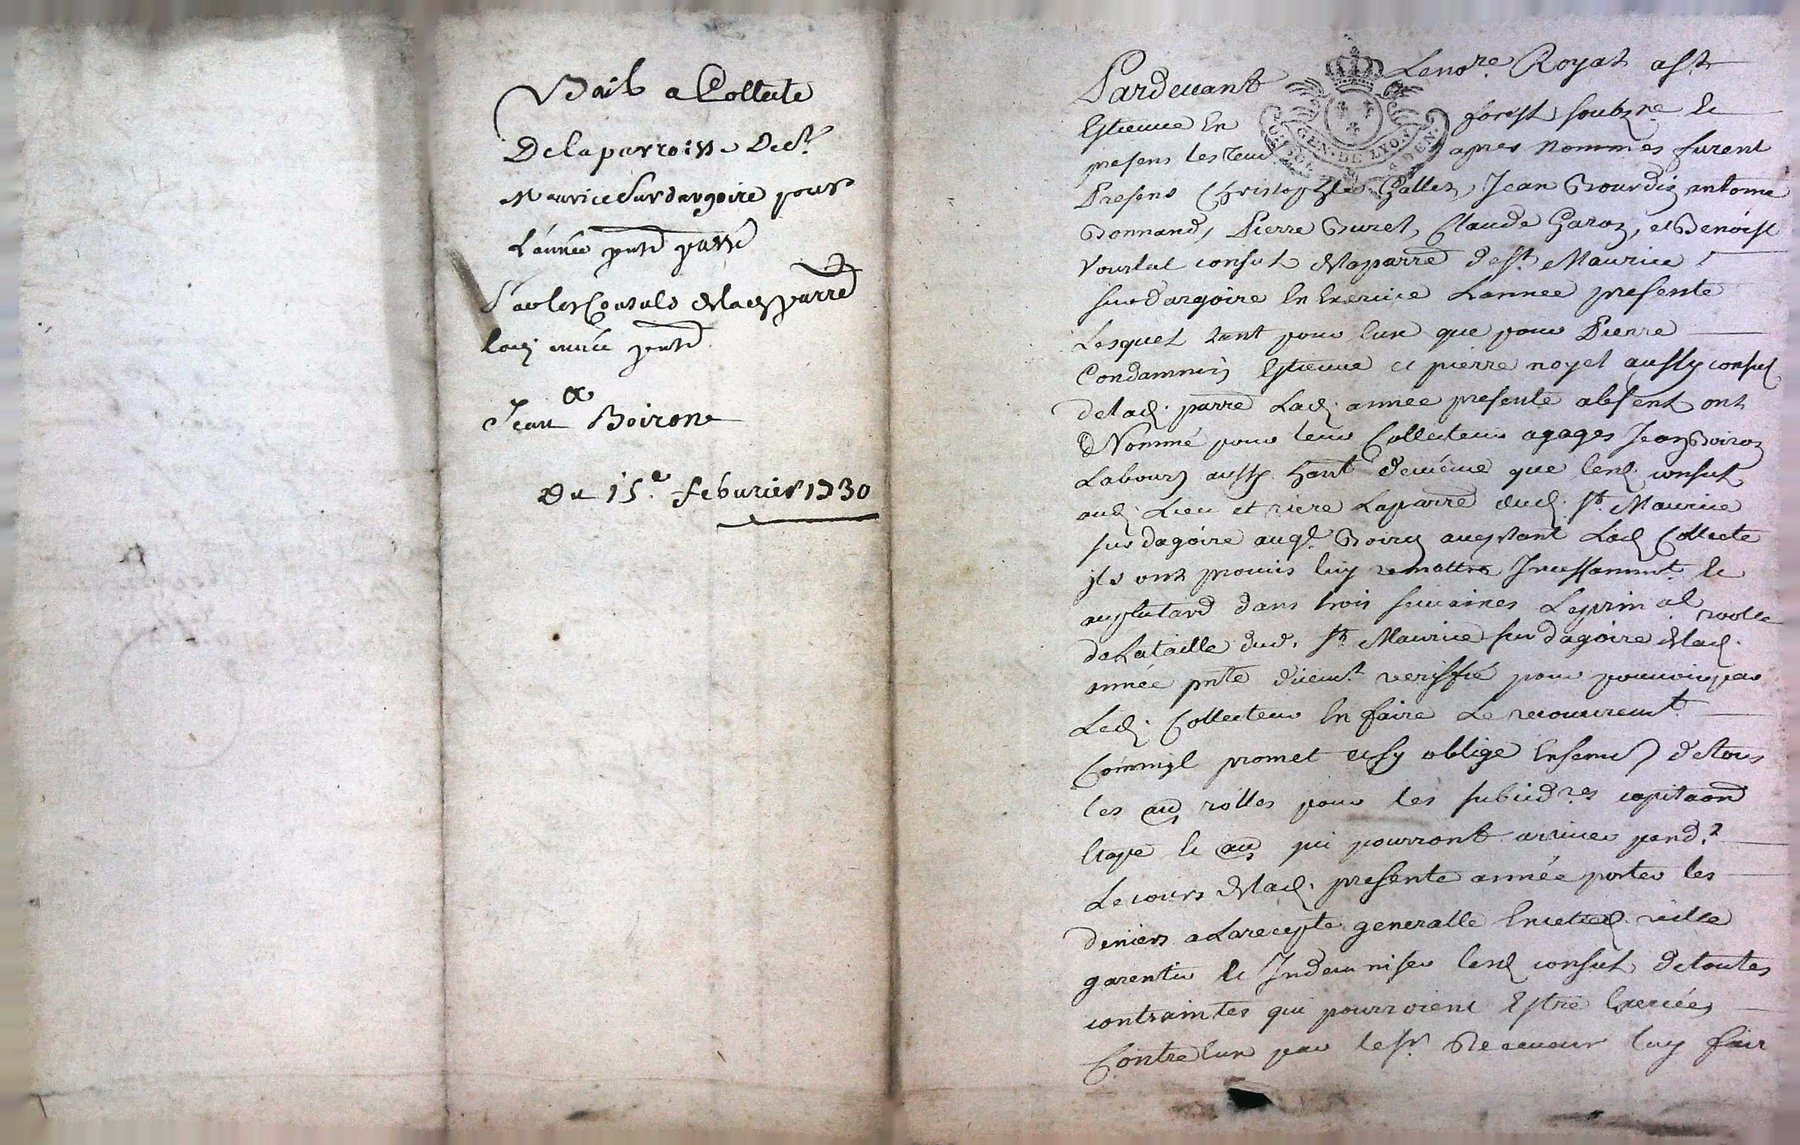 Bail a Collecte
De la parroisse De St.
Maurice Sur dargoire pour
L'année pnte passé
Par les Consuls de lad parre
lad année pnte
a
Jean Boiron
Du 15e. febvrier 1730
Pardevant Le nore. Royal a St
Estienne En forest soubzne. le
presens les apres Nommés furent
Presens Christophle Gallez, Jean Bourdin, antoine
Bonnand, Pierre Buret, Claude Garon, et Benoist
consul de la parre de St. Maurice
sur dargoire En Exercice Lannee presente
Lesquel tant pour Eux que pour Pierre
Condamnin, Estienne et pierre noyel aussy consul
de lad. parre Lad. année presente absent ont
Nommé pour leur Collecteur a gages Jean Boiron
Labour aussy hant de même que lesd. consul
aud. Lieu et riere La parre dud. St. Maurice
sur dagoire auql. Boiron acceptant Lad Collecte
ils ont promis luy remettre Incessammt. le
au plutard dans trois semaines Le prin al rolle
de La taille dud. St. Maurice sur dagoire de lad.
année pnte duemt. verisfié pour pouvoir par
Led. Collecteur En faire Le recouvremt.
Comm'jl promet et sy oblige Ensemb de tous
les au rolles pour les subcidres capitaon
Etape le au qui pourront arriver pendt.
Le cours de lad. presente année porter les
deniers a La recepte generalle En cetted. ville
garentir le Indemniser lesd consul de toutes
contraintes qui pourroient Estre Exercées
Contre Eux par le Sr. Receveur luy fair
GEN. DE LYON